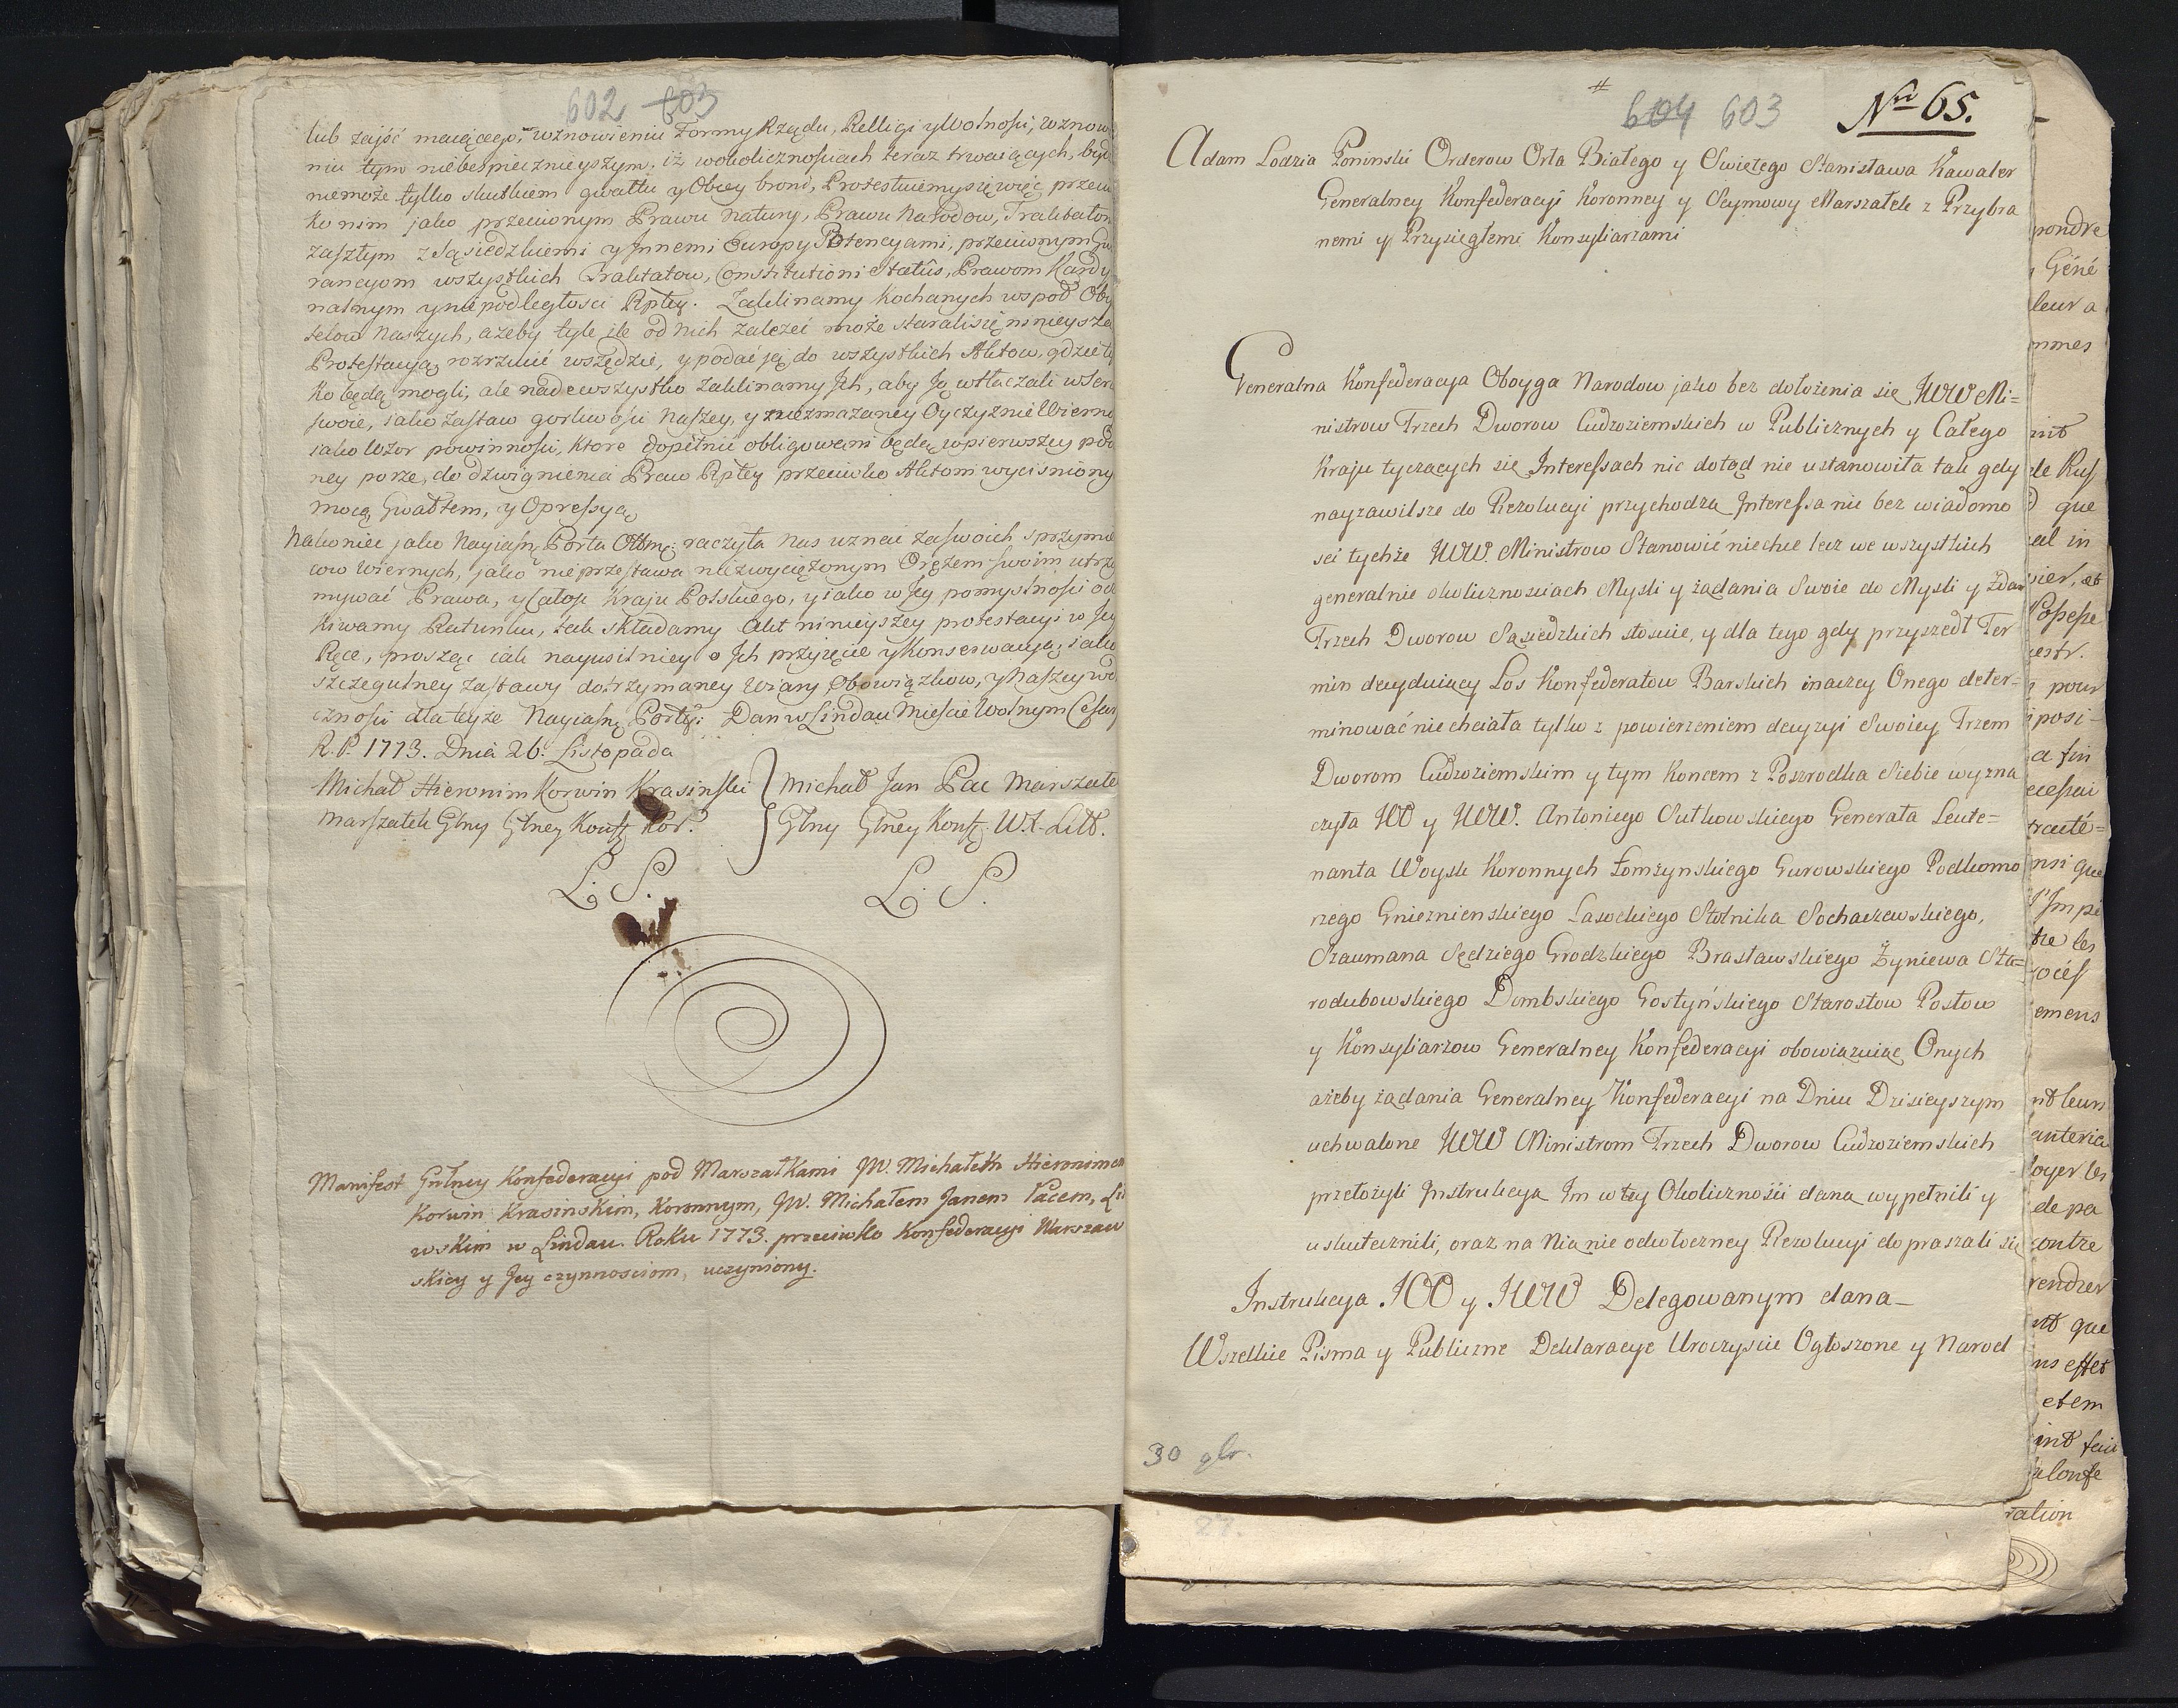 602 603
lub zajść maiącego, wznowieniu Formy Rządu, Relligi y Wolnosci, wznowi
niu tym niebespiecznieyszym, iż wokolicznosciach teraz trwaiących, być
niemoże tylko skutkiem gwałtu y Obcey broni, Protestuiemy się więc przeciw
ko nim jako przeciwnym Prawu natury, Prawu Narodow, Traktatom
zaszłym z Sąsiedzkiemi y Innemi Europy Potencyami, przeciwnym Gwa
rancyom wszystkich Traktatow, Constitutioni Statûs, Prawom Kardy
nalnym y niepodległosci Rptey. Zaklinamy Kochanych wspoł Oby
telow Naszych, ażeby tyle ile od Nich zależeć może starali się ninieysza
Protestacyą rozrzucić wszędzie, y podać ją do wszystkich Aktow, gdzie ty
ko będą mogli, ale nadewszystko zaklinamy Ich, aby Ją wtłaczali w Serc
swoie, iako Zastaw gorliwosci Naszey, y niezmazaney Oyczyznie Wierno
iako Wzor powinnosci, ktore dopełnić obligowani będą wpierwszey pogo
ney porze, do dzwignienia Praw Rptey przeciwko Aktom wycisniony
mocą, Gwałtem, y Opressyą
Nakoniec jako Nayiasn: Porta Ottm: raczyła nas uznać za swoich sprzymie
cow Wiernych, jako nieprzestawa niezwyciężonym Orężem swoim utrzy
mywać Prawa, y Całosc Kraju Polskiego, y iako w Jey pomyslnosci oc
kiwamy Ratunku, tak składamy Akt ninieyszey protestacyi w Jey
Ręce, prosząc iak nayusilniey o Ich przyięcie y Konserwacyą, iako
szczegulney zastawy dotrzymaney Wiary Obowiązkow, y Naszey wd
cznosci dla teyże Nayiasn: Porty: Dan w Lindau Miescie Wolnym Cesar
R. P. 1773. Dnia 26. Listopada
Michał Hieronim Korwin Krasinski } Michał Jan Pac Marszałe
Marszałek Glny Glney Konf: Kor: } Glny Glney Konf: W. X. Litt.
L. S. L. S.
Manifest Gnlney Konfederacyi pod Marszałkami JW. Michałem Hieronimem
Korwin Krasinskim, Koronnym, JW. Michałem Janem Pacem, Li
wskim w Lindau Roku 1773. przeciwko Konfederacyi Warszaw
skiey y Jey czynnosciom, uczyniony.
604 603 Nro 65.
Adam Lodzia Poninski Orderow Orła Białego y Swiętego Stanisława Kawaler
Generalney Konfederacyi Koronney y Seymowy Marszałek z Przybra
nemi y Przysięgłemi Konsyliarzami
Generalna Konfederacya Oboyga Narodow jako bez dołożenia się JWW Mi=
nistrow Trzech Dworow Cudzoziemskich w Publicznych y Całego
Kraju tyczących się Interessach nic dotąd nie ustanowiła tak gdy
nayzawilsze do Rezolucyi przychodza Interessa nic bez wiadomo
sci tychże JWW. Ministrow Stanowić niechce lecz we wszystkich
generalnie okolicznosciach Mysli y żądania Swoie do Mysli y Zdan
Trzech Dworow Sąsiedzkich stosuie, y dla tego gdy przyszedł Ter
min decyduiący Los Konfederatow Barskich inaczey Onego deter=
minować nie chciała tylko z powierzeniem decyzyi Swoiey Trzem
Dworom Cudzoziemskim y tym koncem z Poszrodka Siebie wyzna
czyła JOO y JWW. Antoniego Sułkowskiego Generała Leute=
nanta Woysk Koronnych Łomżynskiego Gurowskiego Podkomo
rzego Gnieznienskiego Lasockiego Stolnika Sochaczewskiego,
Szaumana Sędziego Grodzkiego Brasławskiego Żyniewa Sta=
rodubowskiego Dembskiego Gostyńskiego Starostow Posłow
y Konsyliarzow Generalney Konfederacyi obowiązuiąc Onych
ażeby żądania Generalney Konfederacyi na Dniu Dzisieyszym
uchwalone JWW Ministrom Trzech Dworow Cudzoziemskich
przełożyli Instrukcya Im w tey Okolicznósci dana wypełnili y
uskutecznili, oraz na Nia nie odwłoczney Rezolucyi dopraszali się
Instrukcya JOO y JWW Delegowanym dana
Wszelkie Pisma y Publiczne Deklaracye Uroczyscie Ogłoszone y Narod
30 glr.
27.
pondre
Géné
leur a
mmes
de Rus
que
al in
pour
posi-
a fin
traité=
nsi que
tre les
emens
oyer les
de pa
contre
rendrer
nt que
ns effet
et em
ration